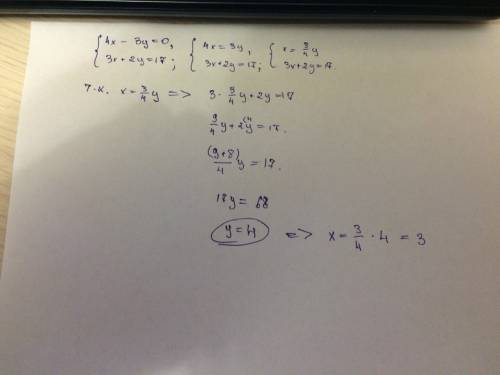 {4x − 3y = 0, {4x = 3y, {x = 3/4 y
3x + 2y = 17; 3x + 2y = 17; 3x + 2y = 17.
т.к. x = 3/4 y => 3 · 3/4 y + 2y = 17
9/4 y + 2y(4 = 17.
(9+8)/4 y = 17.
17y = 68
y = 4 => x = 3/4 · 4 = 3